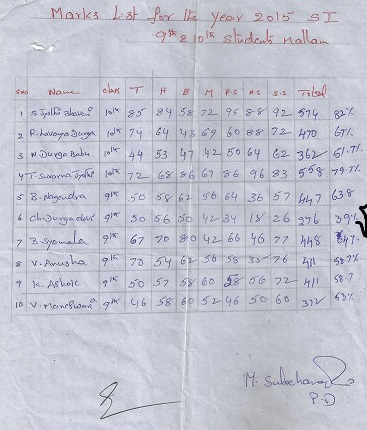 Marks List for the Year 2015 ST
9th & 10th Students Mallam
S.no Name class T H E M P.S N.S S.S Total
1 S Jyothi 10th 85 84 58 72 95 88 92 574 82%
2 R. Lavanya Durga 10th 74 64 43 69 60 88 72 470 67%
3 N Durga Babu 10th 44 53 47 42 50 64 62 362 51.7%
4 T Suvarna Jyothi 10th 72 68 86 67 86 96 83 558 79.7%
5 B. Nagendra 9th 50 58 62 56 64 36 57 447 63.8
6 Ch. Durga devi 9th 50 56 50 42 34 18 26 276 39%
7 B. Syamala 9th 67 70 80 42 66 46 77 448 64%
8 V. Anusha 9th 70 54 62 56 58 35 76 411 58.7%
9 K. Ashok 9th 50 57 58 60 58 56 72 411 58.7
10 V. 9th 46 58 60 52 46 50 60 372 53%
M.
P.D